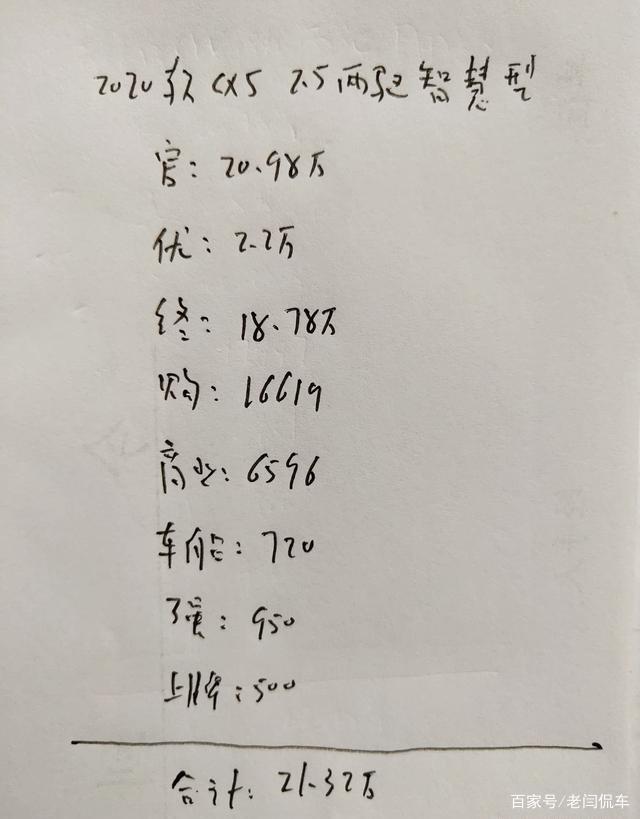 2020款 CX5 2.5两驱智慧型
官: 20.98万
优: 2.2万
终: 18.78万
购: 16619
商业: 6596
车船: 720
强: 950
上牌: 500
合计: 21.32万
百家号/老闫侃车